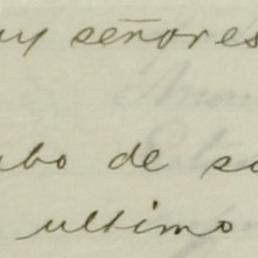 uy señores
abo de sa
ultimo